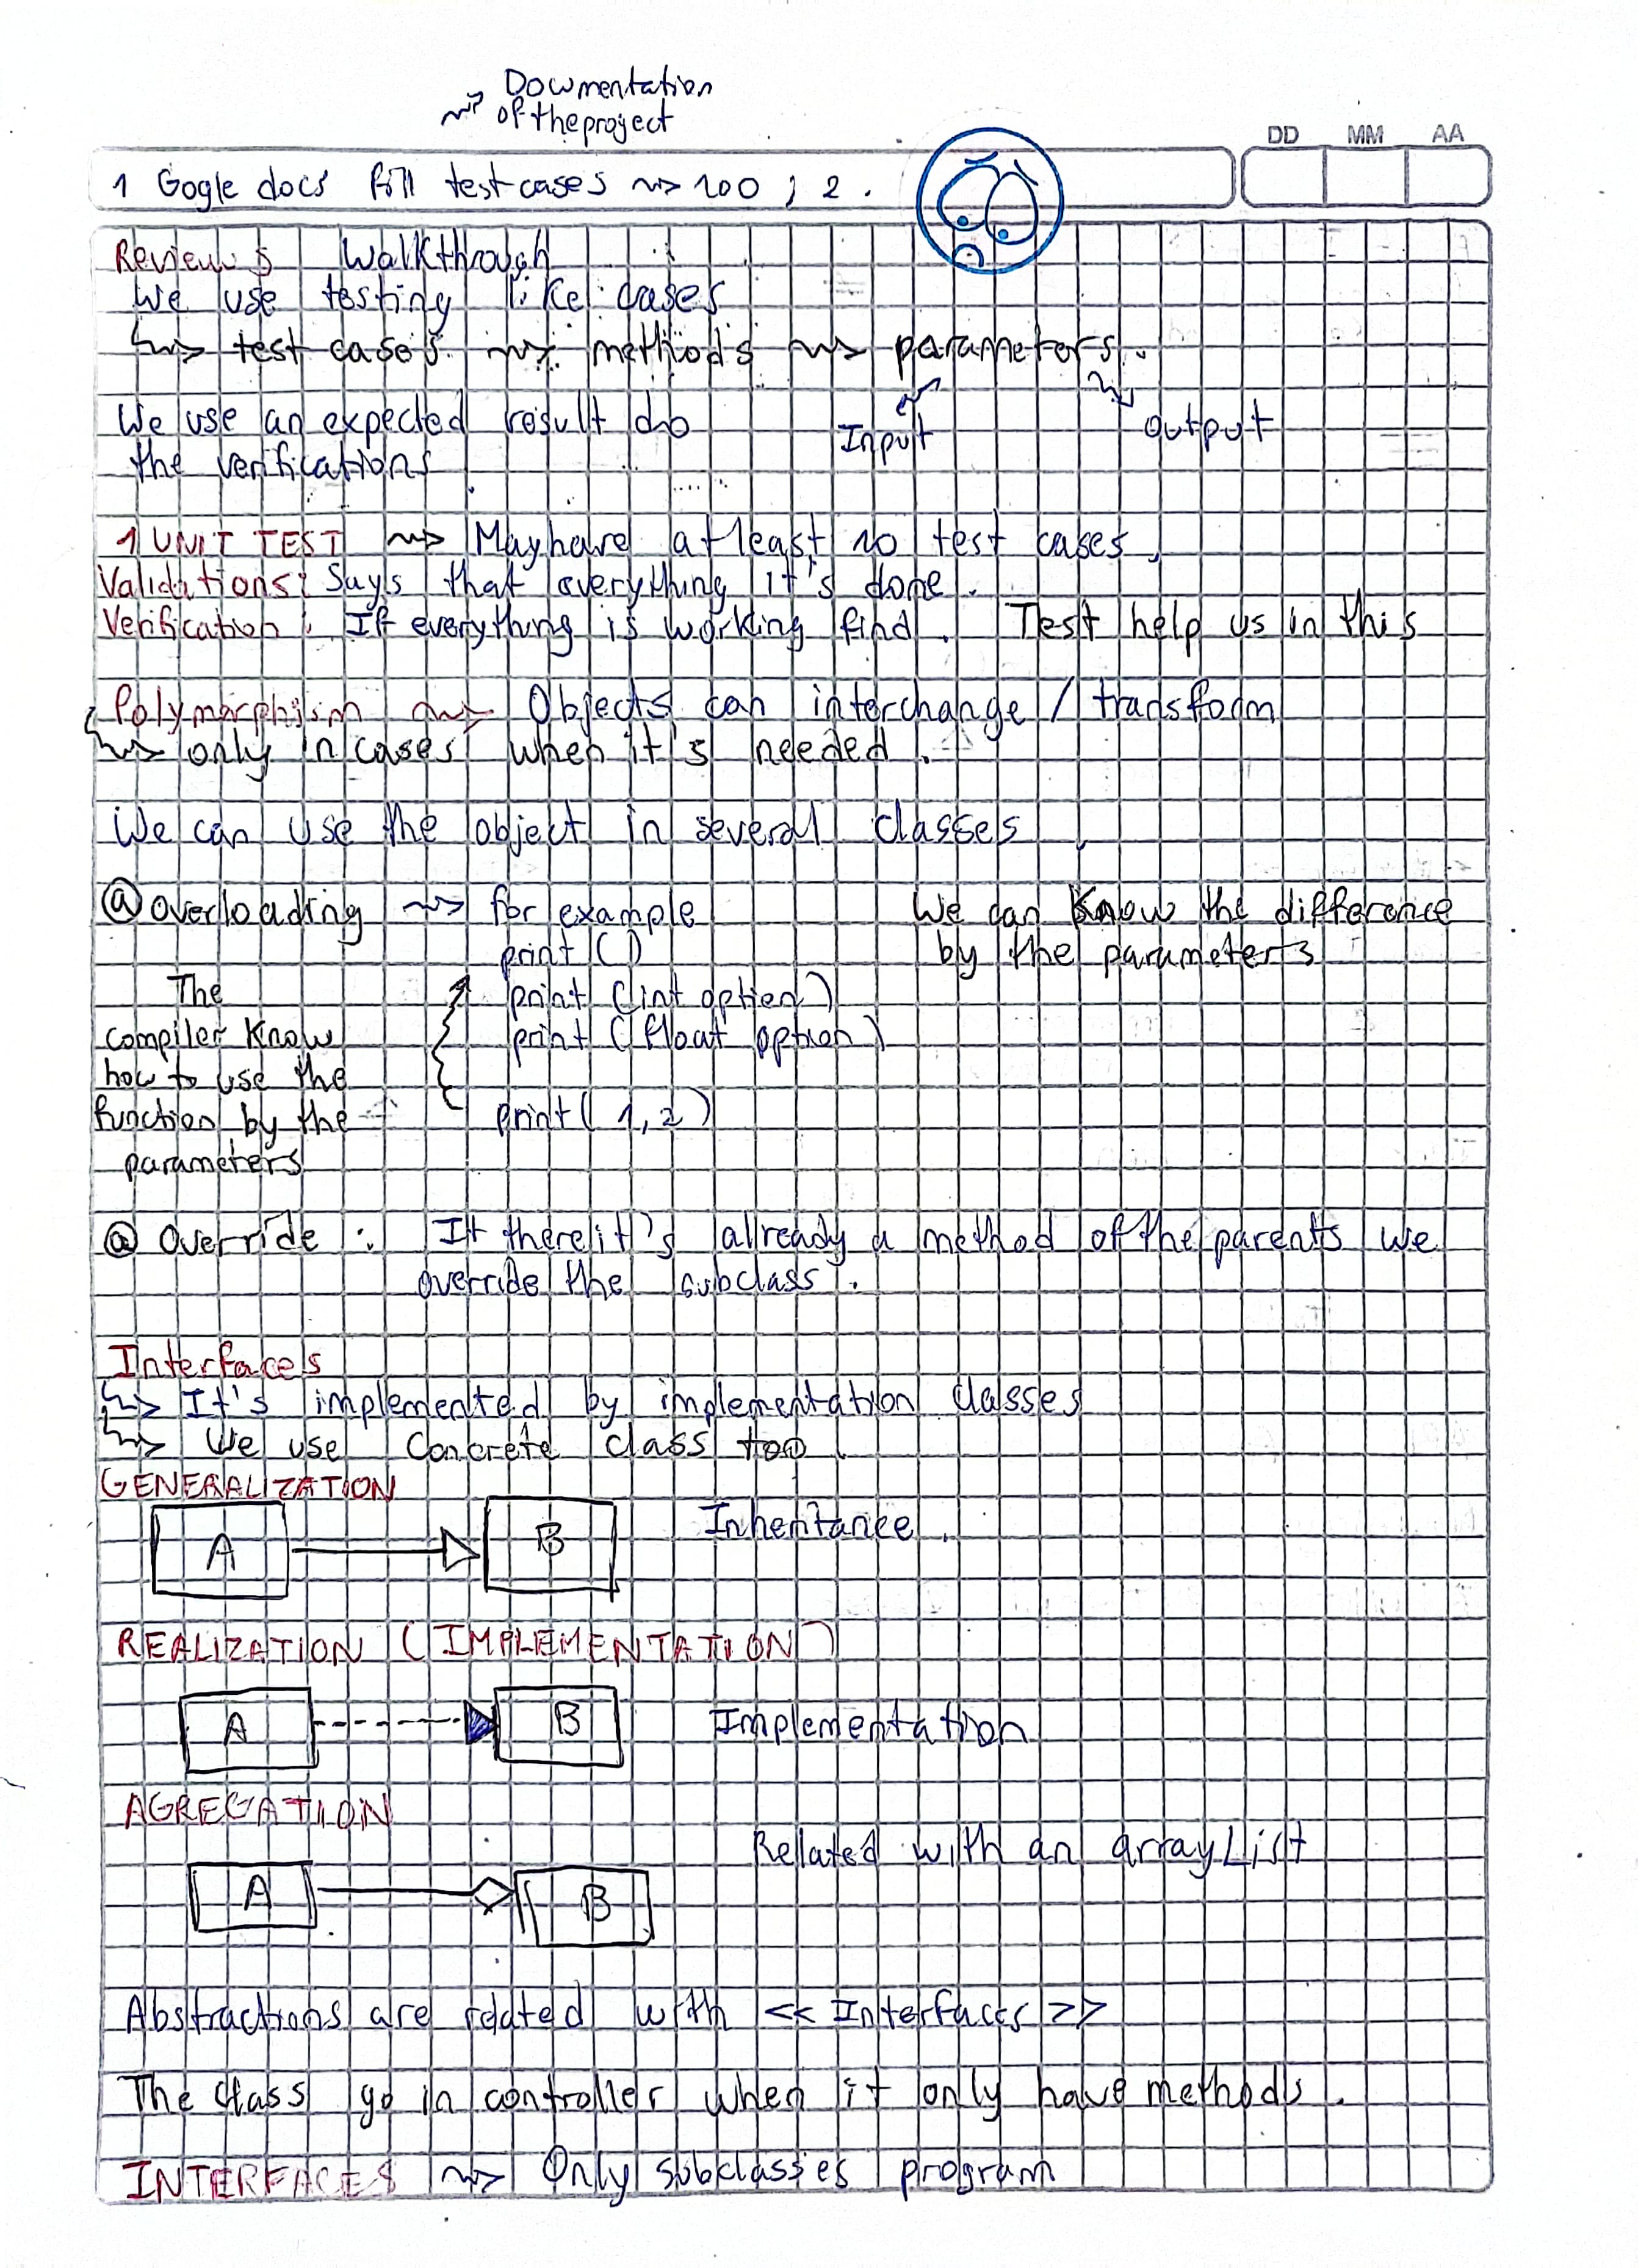 Documentation
~> of the project
DD MM AA
1 Gogle docs fill test cases ~> 100 ; 2 .
Reviews Walkthrough
We use testing like cases
~> test cases ~> methods ~> parameters.
Input Output
We use an expected result do
the verifications
1 UNIT TEST ~> May have at least 10 test cases,
Validations: Says that everything it's done.
Verification: If everything is working find. Test help us in this
Polymorphism ~> Objects can interchange / transform
~> only in cases when it's needed.
We can use the object in several classes
@ Overloading ~> for example
print ()
print (int option)
print (float option)
print (1,2)
We can Know the difference
by the parameters
The
compiler Know
how to use the
function by the
parameters
@ Override : If there it's already a method of the parents we
override the subclass.
Interfaces
~> It's implemented by implementation classes
~> We use Concrete class too
GENERALIZATION
A B Inheritance.
REALIZATION (IMPLEMENTATION)
A B Implementation
AGREGATION
Rellated with an arrayList
A B
Abstractions are related with << Interfaces >>
The class go in controller when it only have methods.
INTERFACES ~> Only subclasses program